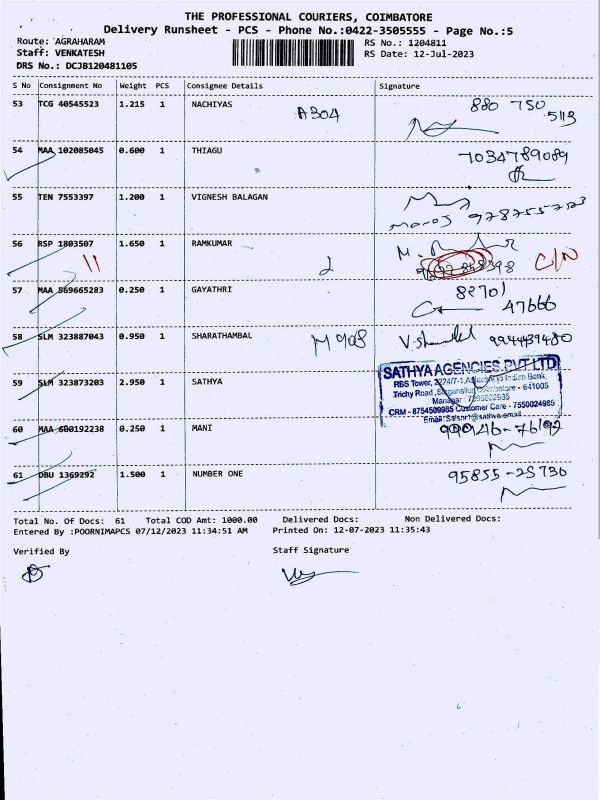 THE PROFESSIONAL COURIERS, COIMBATORE
Delivery Runsheet - PCS - Phone No.:0422-3505555 - Page No.:5
Route: AGRAHARAM RS No.: 1204811
Staff: VENKATESH RS Date: 12-Jul-2023
DRS No.: DCJB120481105
S No Consignment No Weight PCS Consignee Details Signature
53 TCG 40545523 1.215 1 NACHIYAS A304 880 750
5113
54 MAA 102085045 0.600 1 THIAGU 7034789089
55 TEN 7553397 1.200 1 VIGNESH BALAGAN
Manoj
56 RSP 1803507 1.650 1 RAMKUMAR C/N
11
57 MAA 569665283 0.250 1 GAYATHRI 82701
47666
58 SLM 323887043 0.950 1 SHARATHAMBAL M908 9944439480
59 SLM 323873203 2.950 1 SATHYA
SATHYA AGENCIES PVT LTD
RBS Tower, 2224/7-1, Indian Bank,
Trichy Road, Singanallur, Coimbatore - 641005
Manager : 7395802935
CRM - 8754509985 Customer Care - 7550024985
60 MAA 600192238 0.250 1 MANI
61 DBU 1369292 1.500 1 NUMBER ONE 95855-25730
Total No. Of Docs: 61 Total COD Amt: 1000.00 Delivered Docs: Non Delivered Docs:
Entered By :POORNIMAPCS 07/12/2023 11:34:51 AM Printed On: 12-07-2023 11:35:43
Verified By Staff Signature